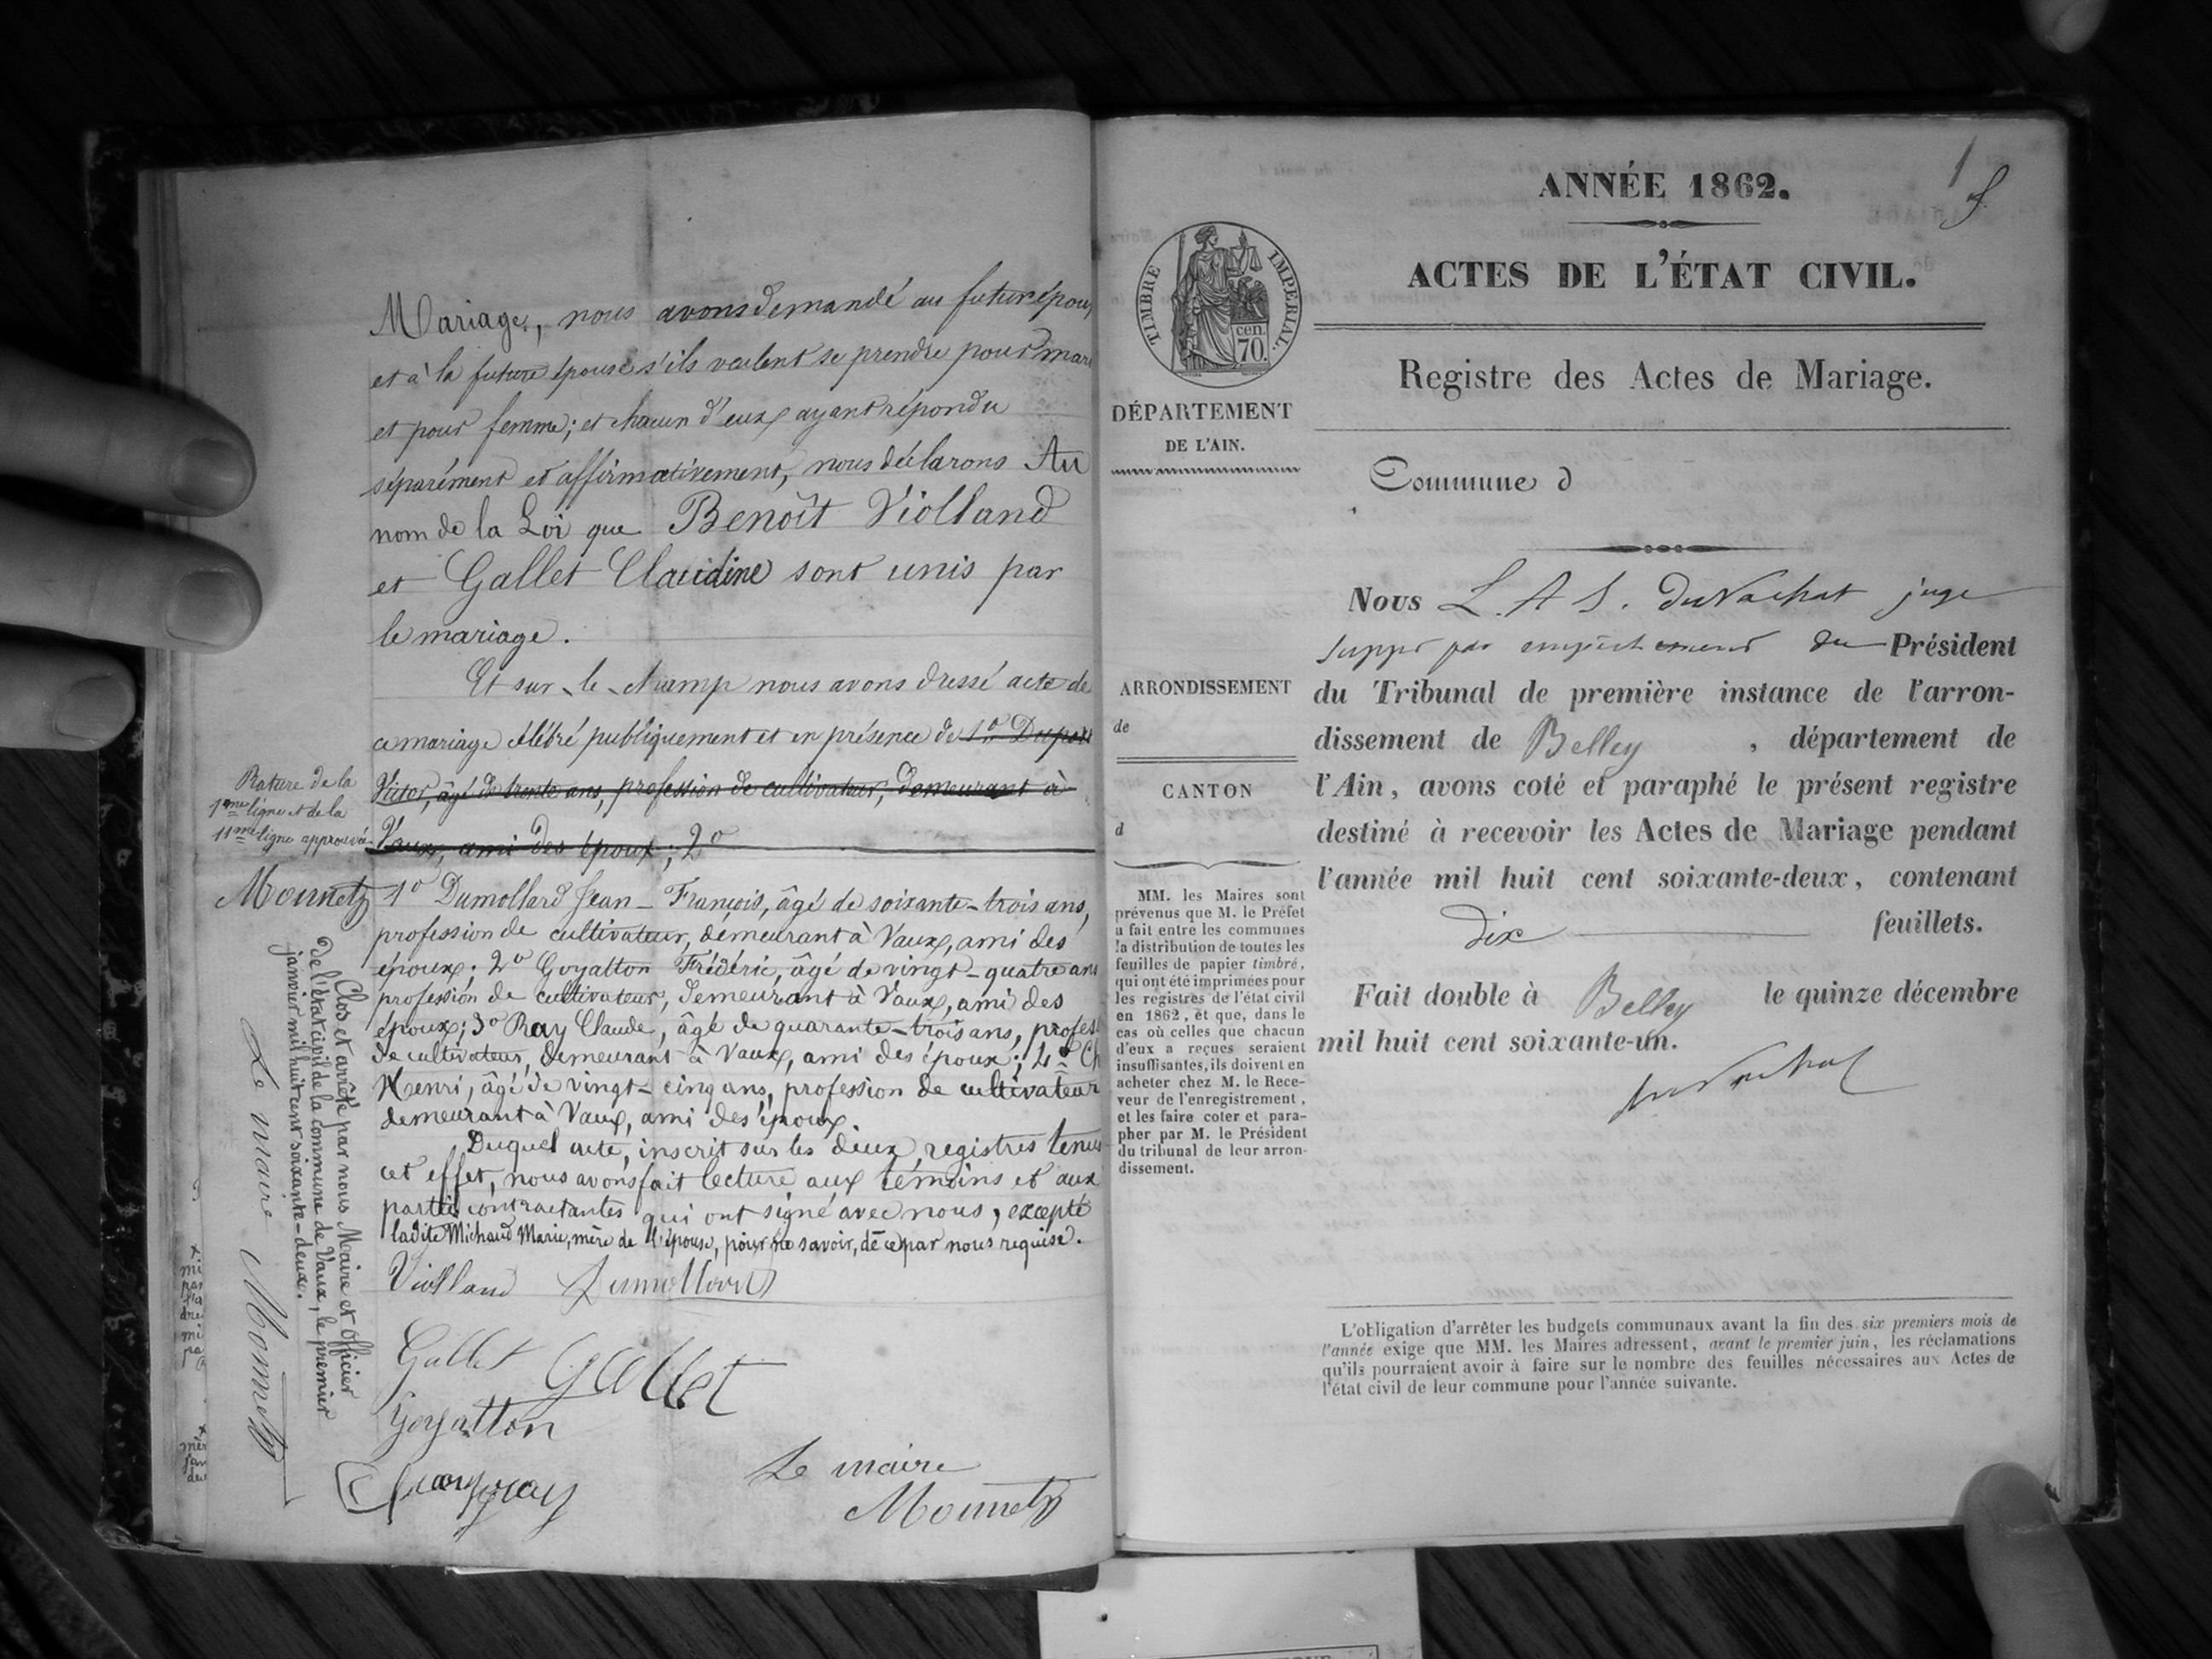 Mariage, nous avons demandé au futur époux
et à la future épouse s'ils veulent se prendre pour mari
et pour femme; et chacun d'eux ayant répondu
séparément et affirmativement, nous déclarons Au
nom de la Loi que Benoît Violland
et Gallet Claudine sont unis par
le mariage.
Et sur-le-champ nous avons dressé acte de
ce mariage célébré publiquement et en présence de 1º Dupont
Victor, âgé de trente ans, profession de cultivateur, demeurant à
Vaux, ami des époux; 2º
1º Dumollard Jean-François, âgé de soixante-trois ans,
profession de cultivateur, demeurant à Vaux, ami des
époux; 2º Goyatton Frédéric, âgé de vingt-quatre ans
profession de cultivateur, demeurant à Vaux, ami des
époux; 3º Ray Claude, âgé de quarante-trois ans, profess
de cultivateur, demeurant à Vaux, ami des époux; 4º Ch
Henri, âgé de vingt-cinq ans, profession de cultivateur
demeurant à Vaux, ami des époux.
Duquel acte, inscrit sur les deux registres tenus
cet effet, nous avons fait lecture aux témoins et aux
parties contractantes qui ont signé avec nous, excepté
ladite Michaud Marie, mère de l'épouse, pour ne savoir, de ce par nous requise.
Violland Dumollard
Gallet Gallet
Goyatton
Le maire
Monnetz
Rature de la
ligne et de la
11me ligne approuvée
Monnetz
Clos et arrêté par nous Maire et officier
de l'état civil de la commune de Vaux, le premier
janvier mil huit cent soixante-deux.
Le maire Monnetz
1
ANNÉE 1862.
ACTES DE L'ÉTAT CIVIL.
Registre des Actes de Mariage.
TIMBRE IMPERIAL.
cen.
70.
DÉPARTEMENT
DE L'AIN.
Commune d
Nous L. A S. DuVachat juge
suppt par empêchement du Président
du Tribunal de première instance de l'arron-
dissement de Belley, département de
l'Ain, avons coté et paraphé le présent registre
destiné à recevoir les Actes de Mariage pendant
l'année mil huit cent soixante-deux, contenant
Dix feuillets.
Fait double à Belley le quinze décembre
mil huit cent soixante-un.
DuVachat
ARRONDISSEMENT
de
CANTON
d
MM. les Maires sont
prévenus que M. le Préfet
a fait entre les communes
la distribution de toutes les
feuilles de papier timbré,
qui ont été imprimées pour
les registres de l'état civil
en 1862, et que, dans le
cas où celles que chacun
d'eux a reçues seraient
insuffisantes, ils doivent en
acheter chez M. le Rece-
veur de l'enregistrement,
et les faire coter et para-
pher par M. le Président
du tribunal de leur arron-
dissement.
L'obligation d'arrêter les budgets communaux avant la fin des six premiers mois de
l'année exige que MM. les Maires adressent, avant le premier juin, les réclamations
qu'ils pourraient avoir à faire sur le nombre des feuilles nécessaires aux Actes de
l'état civil de leur commune pour l'année suivante.